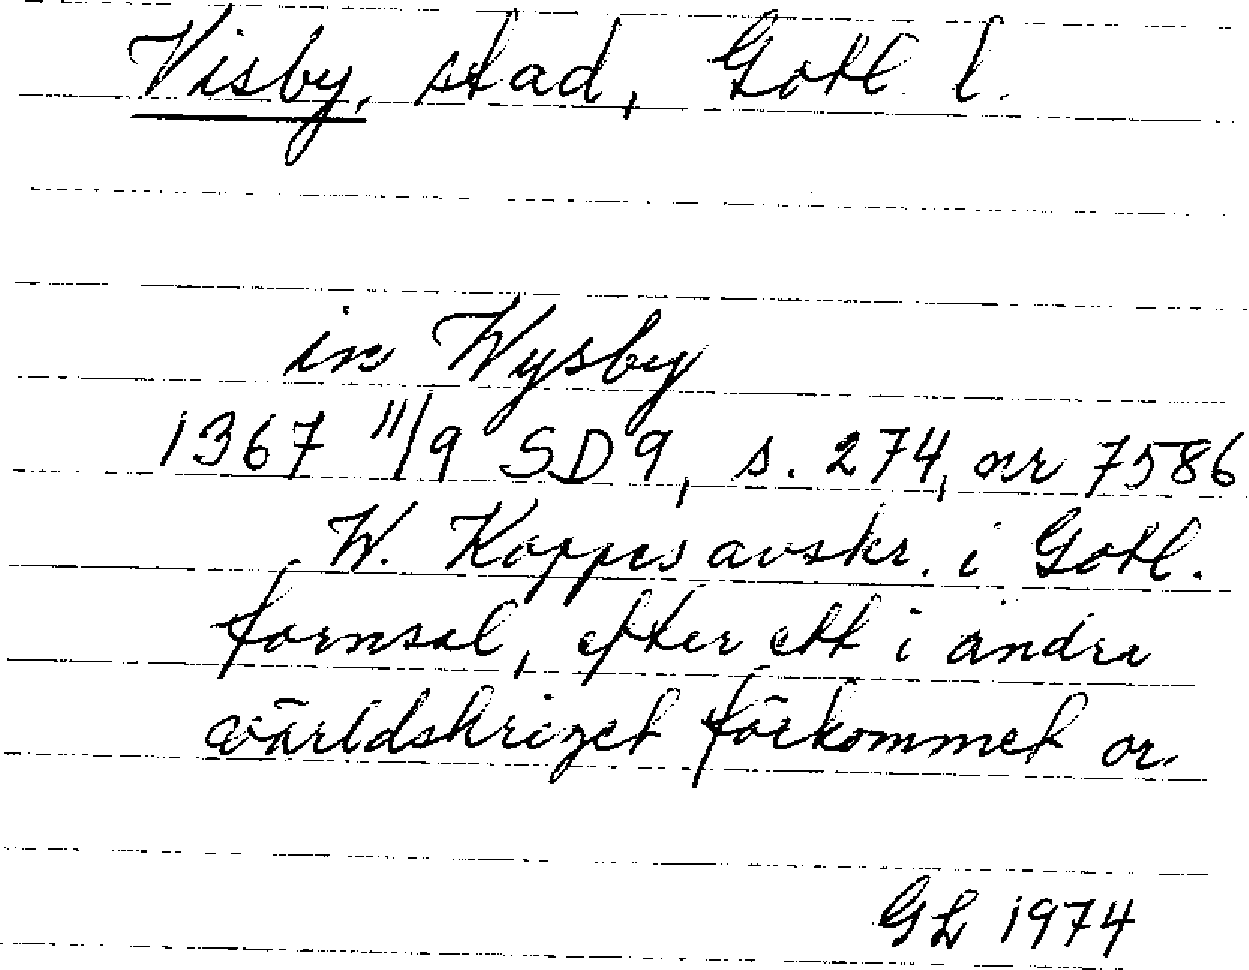 Visby, stad, Gotl. l.
in Wysby
1367 11/9 SD 9, s. 274, nr 7586
W. Koppes avskr. i Gotl.
fornsal, efter ett i andra
världskriget förkommet or.
GL 1974